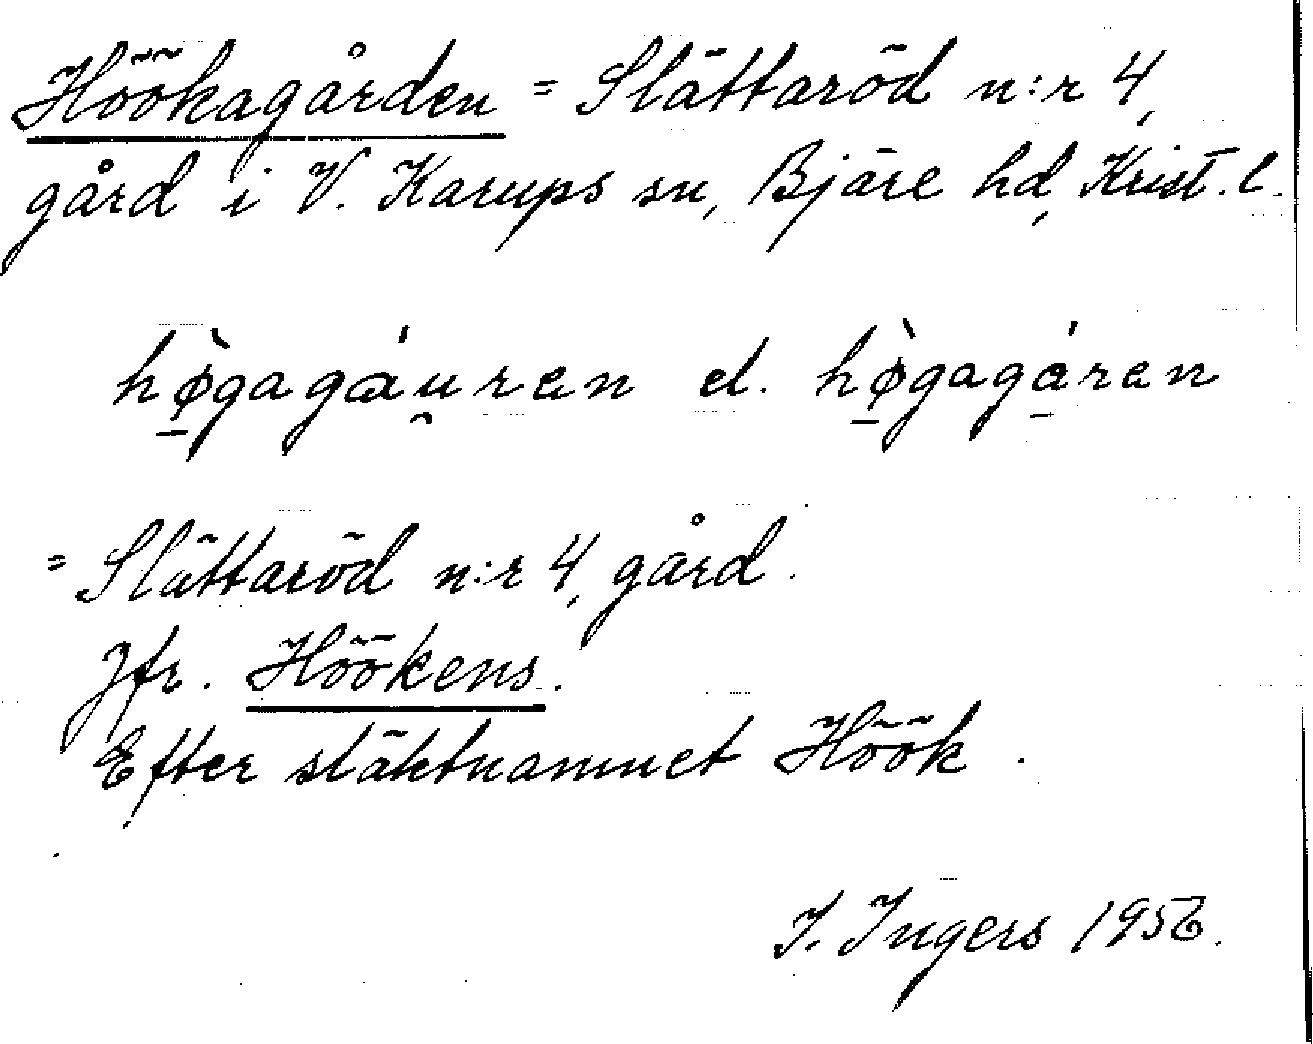 Höökagården = Slättaröd n:r 4,
gård i V. Karups sn, Bjäre hd, Krist. l.
hø̱̀gagáu̯ren el. hø̱̀gagá̱ren
= Slättaröd n:r 4, gård.
Jfr. Höökens.
Efter släktnamnet Höök.
I. Ingers 1956.